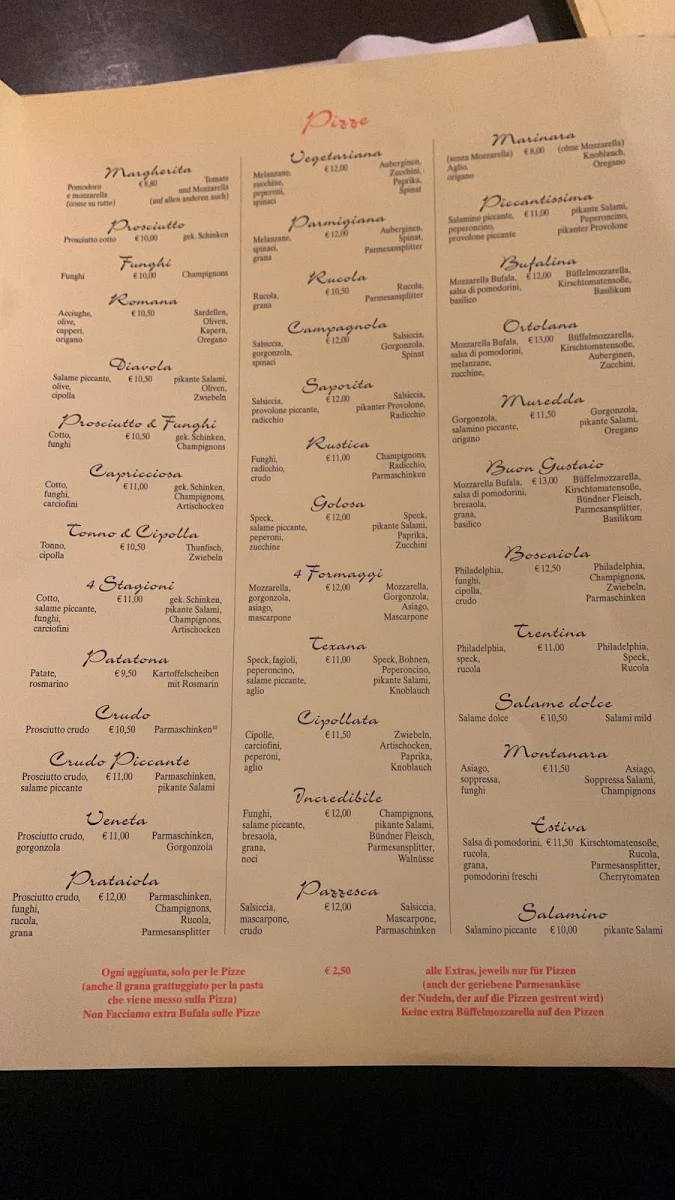 Pizze
Margherita
Pomodoro € 8,80 Tomate
e mozzarella und Mozzarella
(come su tutte) (auf allen anderen auch)
Prosciutto
Prosciutto cotto € 10,00 gek. Schinken
Funghi
Funghi € 10,00 Champignons
Romana
Acciughe, € 10,50 Sardellen,
olive, Oliven,
capperi, Kapern,
origano Oregano
Diavola
Salame piccante, € 10,50 pikante Salami,
olive, Oliven,
cipolla Zwiebeln
Prosciutto & Funghi
Cotto, € 10,50 gek. Schinken,
funghi Champignons
Capricciosa
Cotto, € 11,00 gek. Schinken,
funghi, Champignons,
carciofini Artischocken
Tonno & Cipolla
Tonno, € 10,50 Thunfisch,
cipolla Zwiebeln
4 Stagioni
Cotto, € 11,00 gek. Schinken,
salame piccante, pikante Salami,
funghi, Champignons,
carciofini Artischocken
Patatona
Patate, € 9,50 Kartoffelscheiben
rosmarino mit Rosmarin
Crudo
Prosciutto crudo € 10,50 Parmaschinken
Crudo Piccante
Prosciutto crudo, € 11,00 Parmaschinken,
salame piccante pikante Salami
Veneta
Prosciutto crudo, € 11,00 Parmaschinken,
gorgonzola Gorgonzola
Prataiola
Prosciutto crudo, € 12,00 Parmaschinken,
funghi, Champignons,
rucola, Rucola,
grana Parmesansplitter
Vegetariana
Melanzane, € 12,00 Auberginen,
zucchine, Zucchini,
peperoni, Paprika,
spinaci Spinat
Parmigiana
Melanzane, € 12,00 Auberginen,
spinaci, Spinat,
grana Parmesansplitter
Rucola
Rucola, € 10,50 Rucola,
grana Parmesansplitter
Campagnola
Salsiccia, € 12,00 Salsiccia,
gorgonzola, Gorgonzola,
spinaci Spinat
Saporita
Salsiccia, € 12,00 Salsiccia,
provolone piccante, pikanter Provolone,
radicchio Radicchio
Rustica
Funghi, € 11,00 Champignons,
radicchio, Radicchio,
crudo Parmaschinken
Golosa
Speck, € 12,00 Speck,
salame piccante, pikante Salami,
peperoni, Paprika,
zucchine Zucchini
4 Formaggi
Mozzarella, € 12,00 Mozzarella,
gorgonzola, Gorgonzola,
asiago, Asiago,
mascarpone Mascarpone
Texana
Speck, fagioli, € 11,00 Speck, Bohnen,
peperoncino, Peperoncino,
salame piccante, pikante Salami,
aglio Knoblauch
Cipollata
Cipolle, € 11,50 Zwiebeln,
carciofini, Artischocken,
peperoni, Paprika,
aglio Knoblauch
Incredibile
Funghi, € 12,00 Champignons,
salame piccante, pikante Salami,
bresaola, Bündner Fleisch,
grana, Parmesansplitter,
noci Walnüsse
Pazzesca
Salsiccia, € 12,00 Salsiccia,
mascarpone, Mascarpone,
crudo Parmaschinken
Marinara
(senza Mozzarella) € 8,00 (ohne Mozzarella)
Aglio, Knoblauch,
origano Oregano
Piccantissima
Salamino piccante, € 11,00 pikante Salami,
peperoncino, Peperoncino,
provolone piccante pikanter Provolone
Bufalina
Mozzarella Bufala, € 12,00 Büffelmozzarella,
salsa di pomodorini, Kirschtomatensoße,
basilico Basilikum
Ortolana
Mozzarella Bufala, € 13,00 Büffelmozzarella,
salsa di pomodorini, Kirschtomatensoße,
melanzane, Auberginen,
zucchine, Zucchini,
Muredda
Gorgonzola, € 11,50 Gorgonzola,
salamino piccante, pikante Salami,
origano Oregano
Buon Gustaio
Mozzarella Bufala, € 13,00 Büffelmozzarella,
salsa di pomodorini, Kirschtomatensoße,
bresaola, Bündner Fleisch,
grana, Parmesansplitter,
basilico Basilikum
Boscaiola
Philadelphia, € 12,50 Philadelphia,
funghi, Champignons,
cipolla, Zwiebeln,
crudo Parmaschinken
Trentina
Philadelphia, € 11,00 Philadelphia,
speck, Speck,
rucola Rucola
Salame dolce
Salame dolce € 10,50 Salami mild
Montanara
Asiago, € 11,50 Asiago,
soppressa, Soppressa Salami,
funghi Champignons
Estiva
Salsa di pomodorini, € 11,50 Kirschtomatensoße,
rucola, Rucola,
grana, Parmesansplitter,
pomodorini freschi Cherrytomaten
Salamino
Salamino piccante € 10,00 pikante Salami
Ogni aggiunta, solo per le Pizze € 2,50 alle Extras, jeweils nur für Pizzen
(anche il grana grattuggiato per la pasta (auch der geriebene Parmesankäse
che viene messo sulla Pizza) der Nudeln, der auf die Pizzen gestreut wird)
Non Facciamo extra Bufala sulle Pizze Keine extra Büffelmozzarella auf den Pizzen